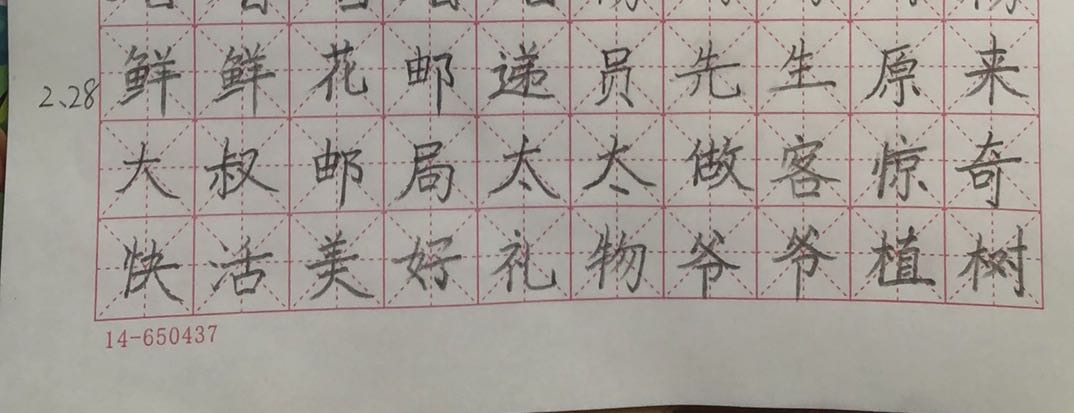 2、28 鲜鲜花邮递员先生原来
大叔邮局太太做客惊奇
快活美好礼物爷爷植树
14-650437